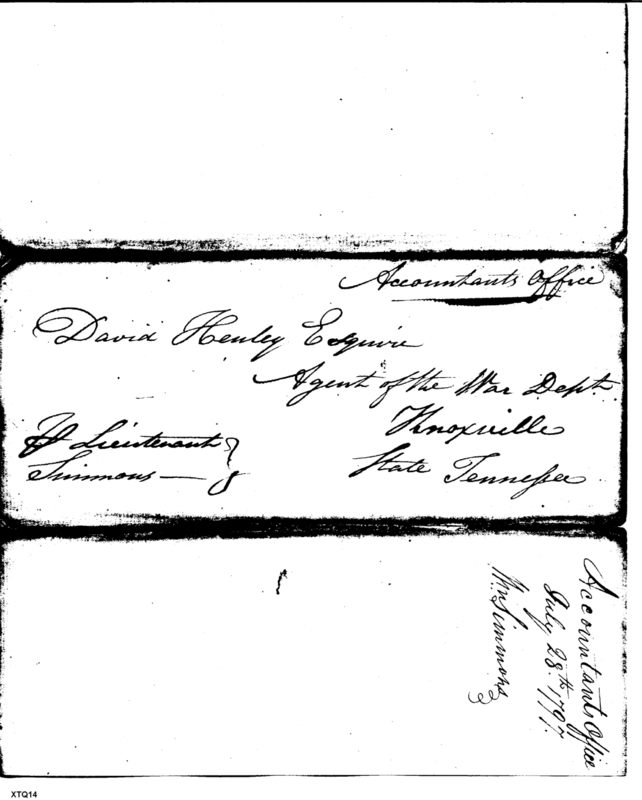 Accountants Office
David Henley Esquire
Agent of the War Dept.
Knoxville
State Tennessee
Lieutenant
Simmons
Accountants Office
July 28th 1797.
Wm Simmons
XTQ14